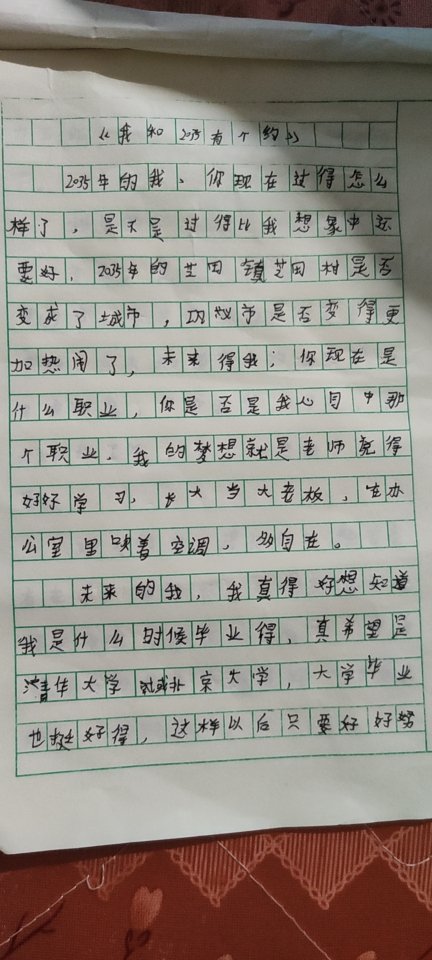 《我和2035有个约》
2035年的我、你现在过得怎么
样了，是不是过得比我想象中还
要好，2035年的芝田镇芝田村是否
变成了城市，巩义市是否变得更
加热闹了，未来得我；你现在是
什么职业，你是否是我心目中那
个职业，我的梦想就是老师说得
好好学习，长大当大老板，在办
公室里吹着空调，多自在。
未来的我，我真得好想知道
我是什么时候毕业得，真希望是
清华大学或北京大学，大学毕业
也挺好得，这样以后只要好好努